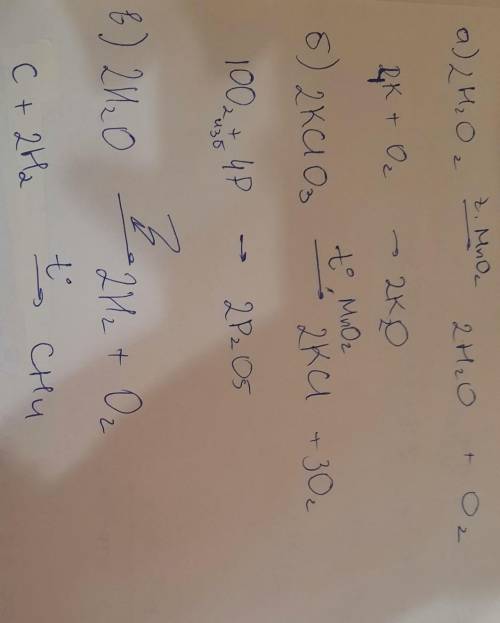 а) 2H₂O₂ z. MnO₂ → 2H₂O + O₂
4K + O₂ → 2K₂O
б) 2KClO₃ t°, MnO₂ → 2KCl + 3O₂
10O₂ изб + 4P → 2P₂O₅
в) 2H₂O → 2H₂ + O₂
C + 2H₂ t° → CH₄